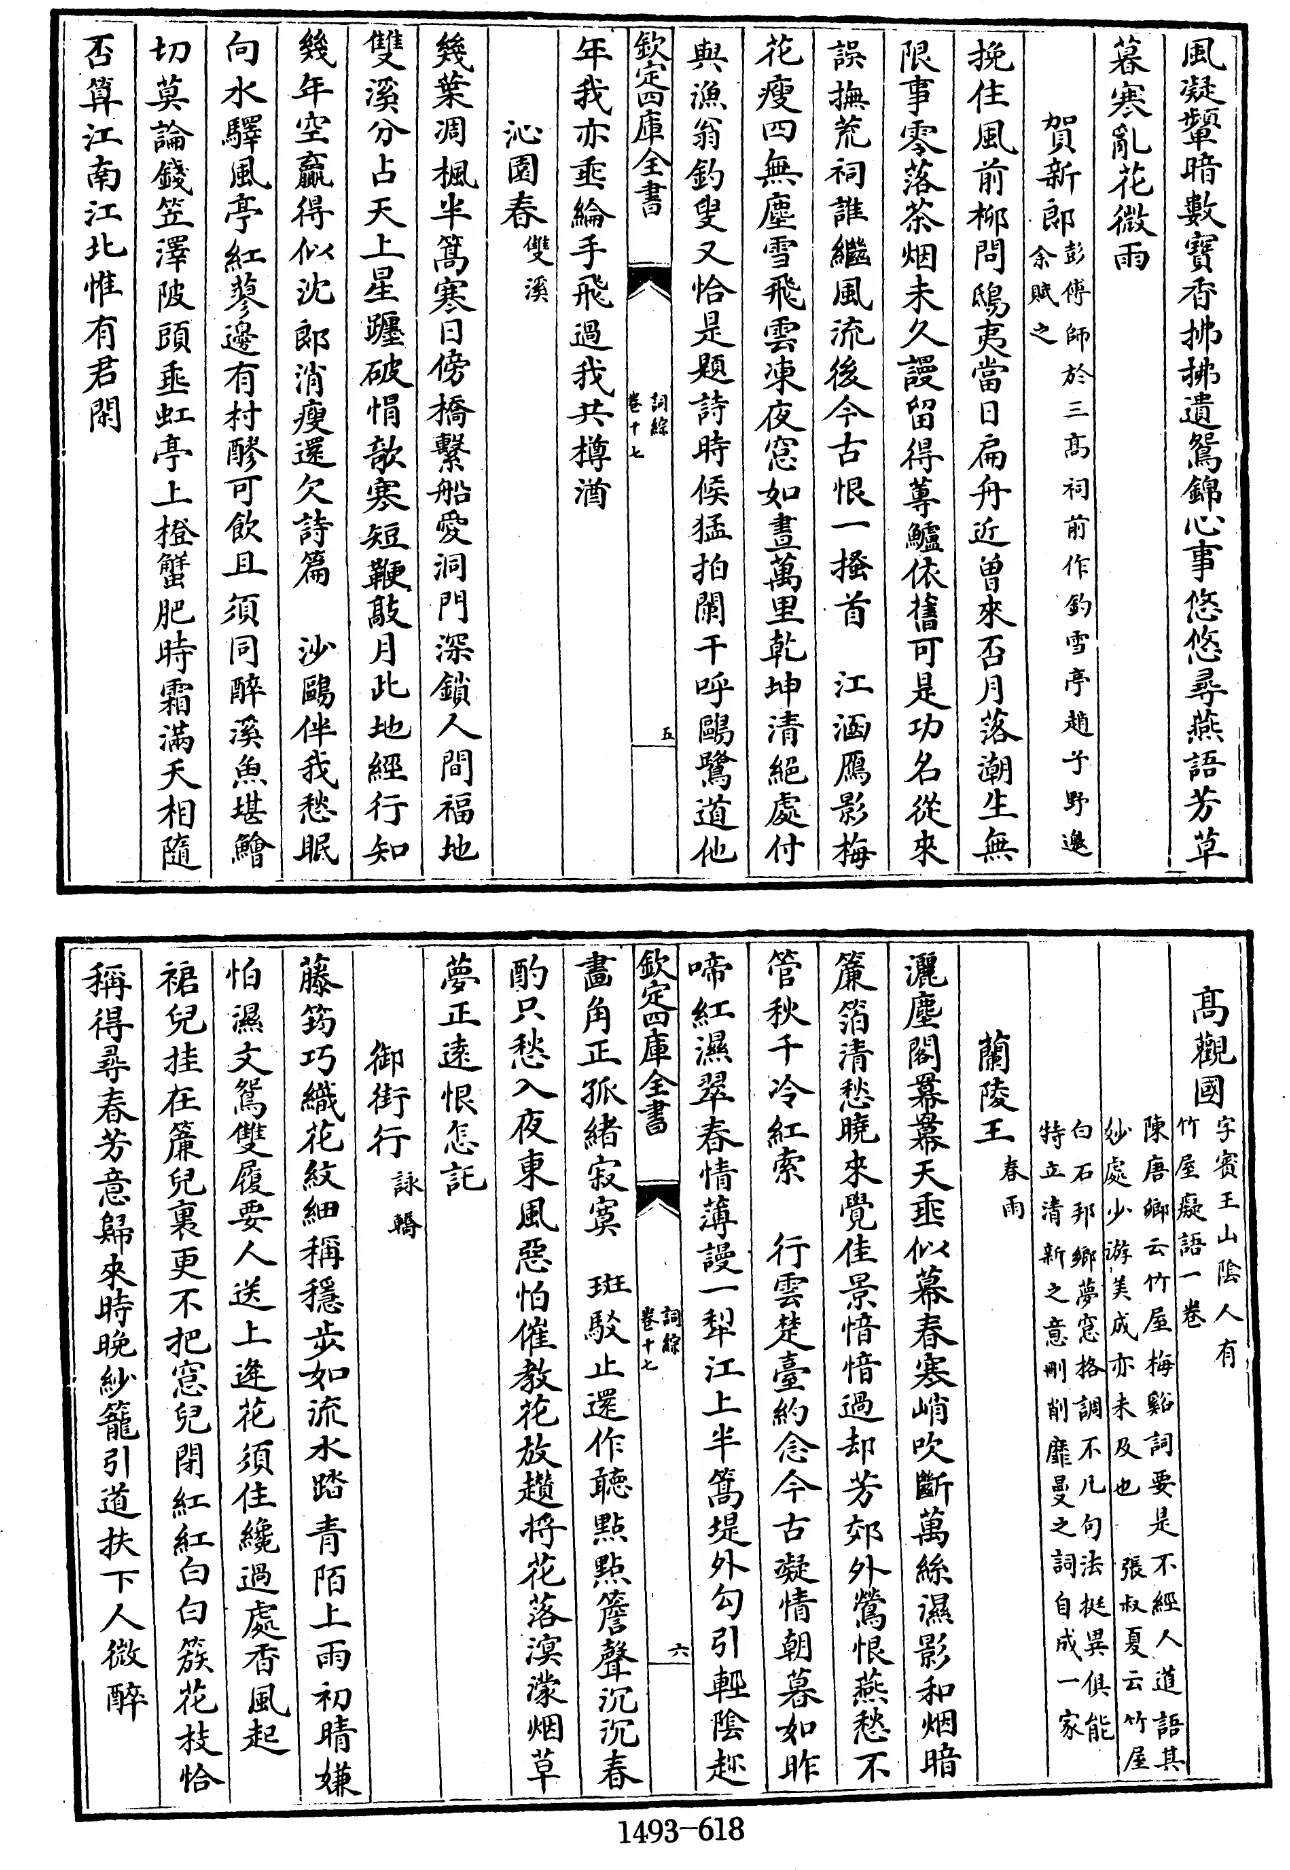 風凝顰暗數寶香拂拂遺鴛錦心事悠悠尋燕語芳草
暮寒亂花微雨
賀新郎
彭傅師於三髙祠前作釣雪亭趙子野邀
余賦之
挽住風前柳問鴟夷當日扁舟近曾來否月落潮生無
限事零落茶烟未久謾留得蓴鱸依舊可是功名從來
誤撫荒祠誰繼風流後今古恨一搔首　江涵鴈影梅
花瘦四無塵雪飛雲凍夜窓如晝萬里乾坤清絕處付
與漁翁釣叟又恰是題詩時候猛拍闌干呼鷗鷺道他
欽定四庫全書
詞綜
卷十七
五
年我亦垂綸手飛過我共樽酒
沁園春
雙溪
幾葉凋楓半篙寒日傍橋繫船愛洞門深鎖人間福地
雙溪分占天上星躔破帽敧寒短鞭敲月此地經行知
幾年空贏得似沈郎消瘦還欠詩篇　沙鷗伴我愁眠
向水驛風亭紅蓼邊有村醪可飲且須同醉溪魚堪鱠
切莫論錢笠澤陂頭垂虹亭上橙蟹肥時霜滿天相隨
否算江南江北惟有君閑
髙觀國
字賓王山陰人有
竹屋癡語一卷
陳唐卿云竹屋梅谿詞要是不經人道語其
妙處少游美成亦未及也　張叔夏云竹屋
白石邦卿夢窓格調不凡句法挺異俱能
特立清新之意刪削靡曼之詞自成一家
蘭陵王
春雨
灑塵閣冪冪天垂似幕春寒峭吹斷萬絲濕影和烟暗
簾箔清愁曉來覺佳景愔愔過却芳郊外鶯恨燕愁不
管秋千冷紅索　行雲楚臺約念今古凝情朝暮如昨
啼紅濕翠春情薄謾一犂江上半篙堤外勾引輕陰趂
欽定四庫全書
詞綜
卷十七
六
畫角正孤緒寂寞　斑駁止還作聽點點簷聲沉沉春
酌只愁入夜東風惡怕催教花放趲將花落溟濛烟草
夢正遠恨怎託
御街行
詠轎
藤筠巧織花紋細稱穩步如流水踏青陌上雨初晴嫌
怕濕文鴛雙履要人送上逄花須住纔過處香風起
裙兒挂在簾兒裏更不把窓兒閉紅紅白白簇花枝恰
稱得尋春芳意歸來時晚紗籠引道扶下人微醉
1493-618